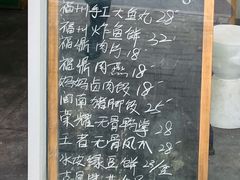 福州手工大鱼丸 28
福州炸鱼饼 32
福鼎肉片 18
福鼎肉燕 18
妈妈卤肉饭 18
闽南猪脚饭 25
荣耀无骨鸭掌 28
王者无骨凤爪 28
冰皮绿豆饼 28/盒